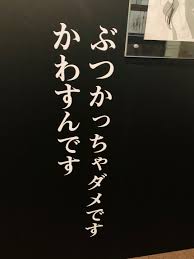 ぶつかっちゃダメです
かわすんです